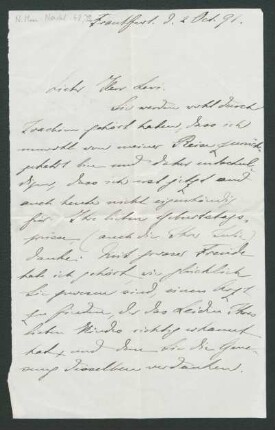 Frankfurt. d. 2 Oct. 91.
Lieber Herr Levi.
Sie werden wohl durch
Joachim gehört haben, dass ich
unwohl von meiner Reise zurück-
gekehrt bin und daher entschul-
digen, dass ich erst jetzt und
auch heute nicht eigenhändig
für Ihre lieben Geburtstags-
grüsse (auch die Ihrer
danke. Mit grosser Freude
hab ich gehört wie glücklich
Sie gewesen sind, einen Arzt
zu finden, der das Leiden Ihres
lieben Kindes richtig erkannt
hat, und dem Sie die Gene-
sung desselben verdanken.